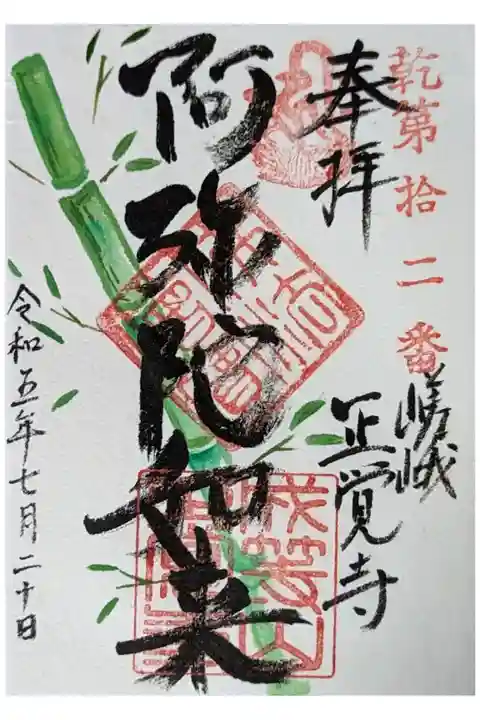 乾第拾二番
奉拝
嵯峨
正覚寺
阿弥陀如来
成等山
令和五年七月二十日